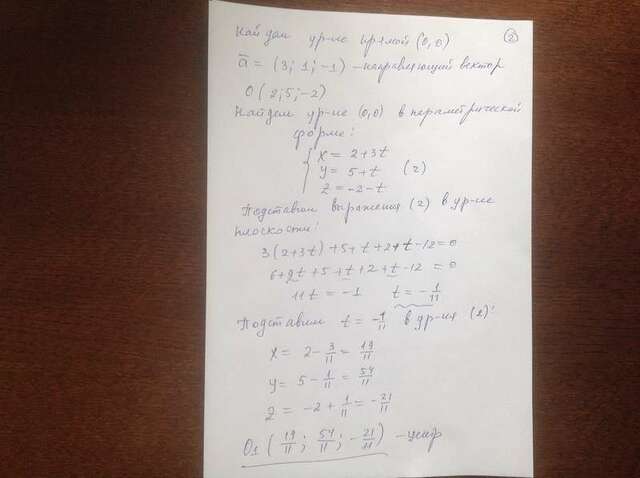 Найдем ур-ие прямой (0,0)
②
ā = (3; 1; -1) - направляющий вектор
O(2; 5; -2)
Найдем ур-ие (0,0) в параметрической
форме:
{ x = 2+3t
y = 5+t (2)
z = -2-t
Подставим выражения (2) в ур-ие
плоскости:
3(2+3t)+5+t+2+t-12=0
6+9t+5+t+2+t-12=0
11t = -1 t = -1/11
Подставим t = -1/11 в ур-ия (2):
x = 2 - 3/11 = 19/11
y = 5 - 1/11 = 54/11
z = -2 + 1/11 = -21/11
O₁ (19/11; 54/11; -21/11) - центр